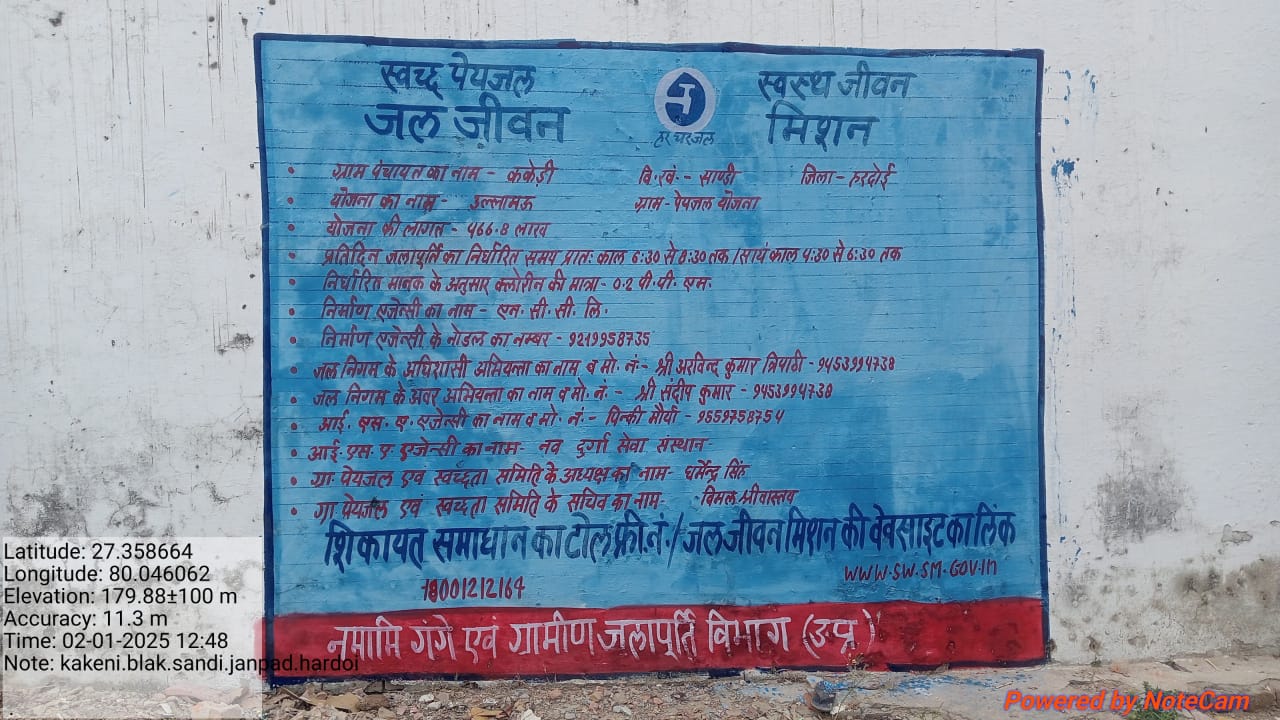 स्वच्छ पेयजल
स्वस्थ जीवन
जल जीवन
मिशन
हर घर जल
• ग्राम पंचायत का नाम - ककेड़ी वि.खं. - साण्डी जिला - हरदोई
• योजना का नाम - उल्लामऊ ग्राम - पेयजल योजना
• योजना की लागत - ५66.8 लाख
• प्रतिदिन जलापूर्ति का निर्धारित समय प्रातः काल 6:30 से 8:30 तक / सायं काल 4:30 से 6:30 तक
• निर्धारित मानक के अनुसार क्लोरीन की मात्रा - 0.2 पी.पी. एम.
• निर्माण एजेन्सी का नाम - एन. सी. सी. लि.
• निर्माण एजेन्सी के नोडल का नम्बर - 9219958735
• जल निगम के अधिशासी अभियन्ता का नाम व मो. नं:- श्री अरविन्द कुमार त्रिपाठी - 9453994738
• जल निगम के अवर अभियन्ता का नाम व मो. नं. - श्री संदीप कुमार - 9453994738
• आई. एस. ए. एजेन्सी का नाम व मो. नं. - पिन्की मौर्या - 9559758754
• आई. एस. ए एजेन्सी का नाम- नव दुर्गा सेवा संस्थान
• ग्रा. पेयजल एवं स्वच्छता समिति के अध्यक्ष का नाम- धर्मेन्द्र सिंह
• ग्रा. पेयजल एवं स्वच्छता समिति के सचिव का नाम- विमल श्रीवास्तव
शिकायत समाधान का टोल फ्री.नं./ जल जीवन मिशन की वेबसाइट का लिंक
18001212164
WWW.SW.SM.GOV.in
नमामि गंगे एवं ग्रामीण जलापूर्ति विभाग (उ.प्र.)
Latitude: 27.358664
Longitude: 80.046062
Elevation: 179.88±100 m
Accuracy: 11.3 m
Time: 02-01-2025 12:48
Note: kakeni.blak.sandi.janpad.hardoi
Powered by NoteCam